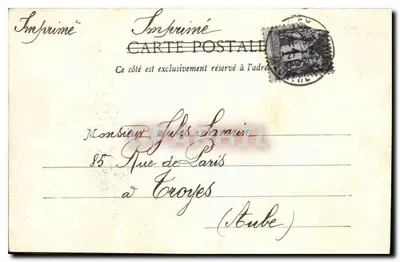 Imprimé Imprimé
CARTE POSTALE
Ce côté est exclusivement réservé à l'adre
Monsieur Jules Savarin
85 Rue de Paris
à Troyes
(Aube)